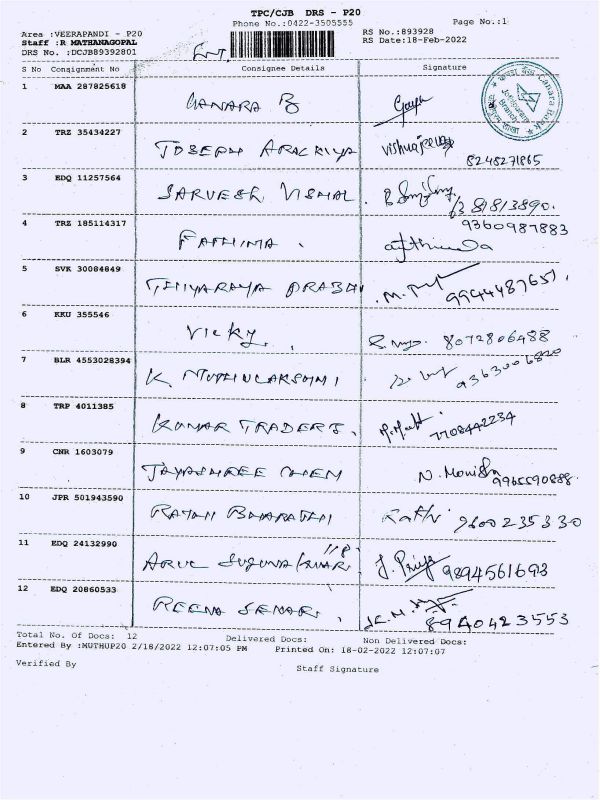 TPC/CJB DRS - P20
Phone No.:0422-3505555 Page No.:1
Area :VEERAPANDI - P20 RS No.:893928
Staff :R MATHANAGOPAL RS Date:18-Feb-2022
DRS No. :DCJB89392801
S No Consignment No Consignee Details Signature
1 MAA 287825618 CANARA B
Canara Bank
2 TRZ 35434227 JOSEPH 8248271865
3 EDQ 11257564 SARVESH VISHAL
4 TRZ 185114317 FATHIMA . 9360987883
5 SVK 30084849 9944487651
6 KKU 355546 Vicky. 8072806488
7 BLR 4553028394 K MUTHULAKSHMI 9363006820
8 TRP 4011385 KUMAR TRADERS. 7708442234
9 CNR 1603079 JAYASHREE CHEM N. Monisha 9965590888
10 JPR 501943590 RAJAN BHARATHI 9600235330
11 EDQ 24132990 ARUL SUGUNAKUMARI J. Priya 9894561693
12 EDQ 20860533 REENA 8940423553
Total No. Of Docs: 12 Delivered Docs: Non Delivered Docs:
Entered By :MUTHUP20 2/18/2022 12:07:05 PM Printed On: 18-02-2022 12:07:07
Verified By Staff Signature